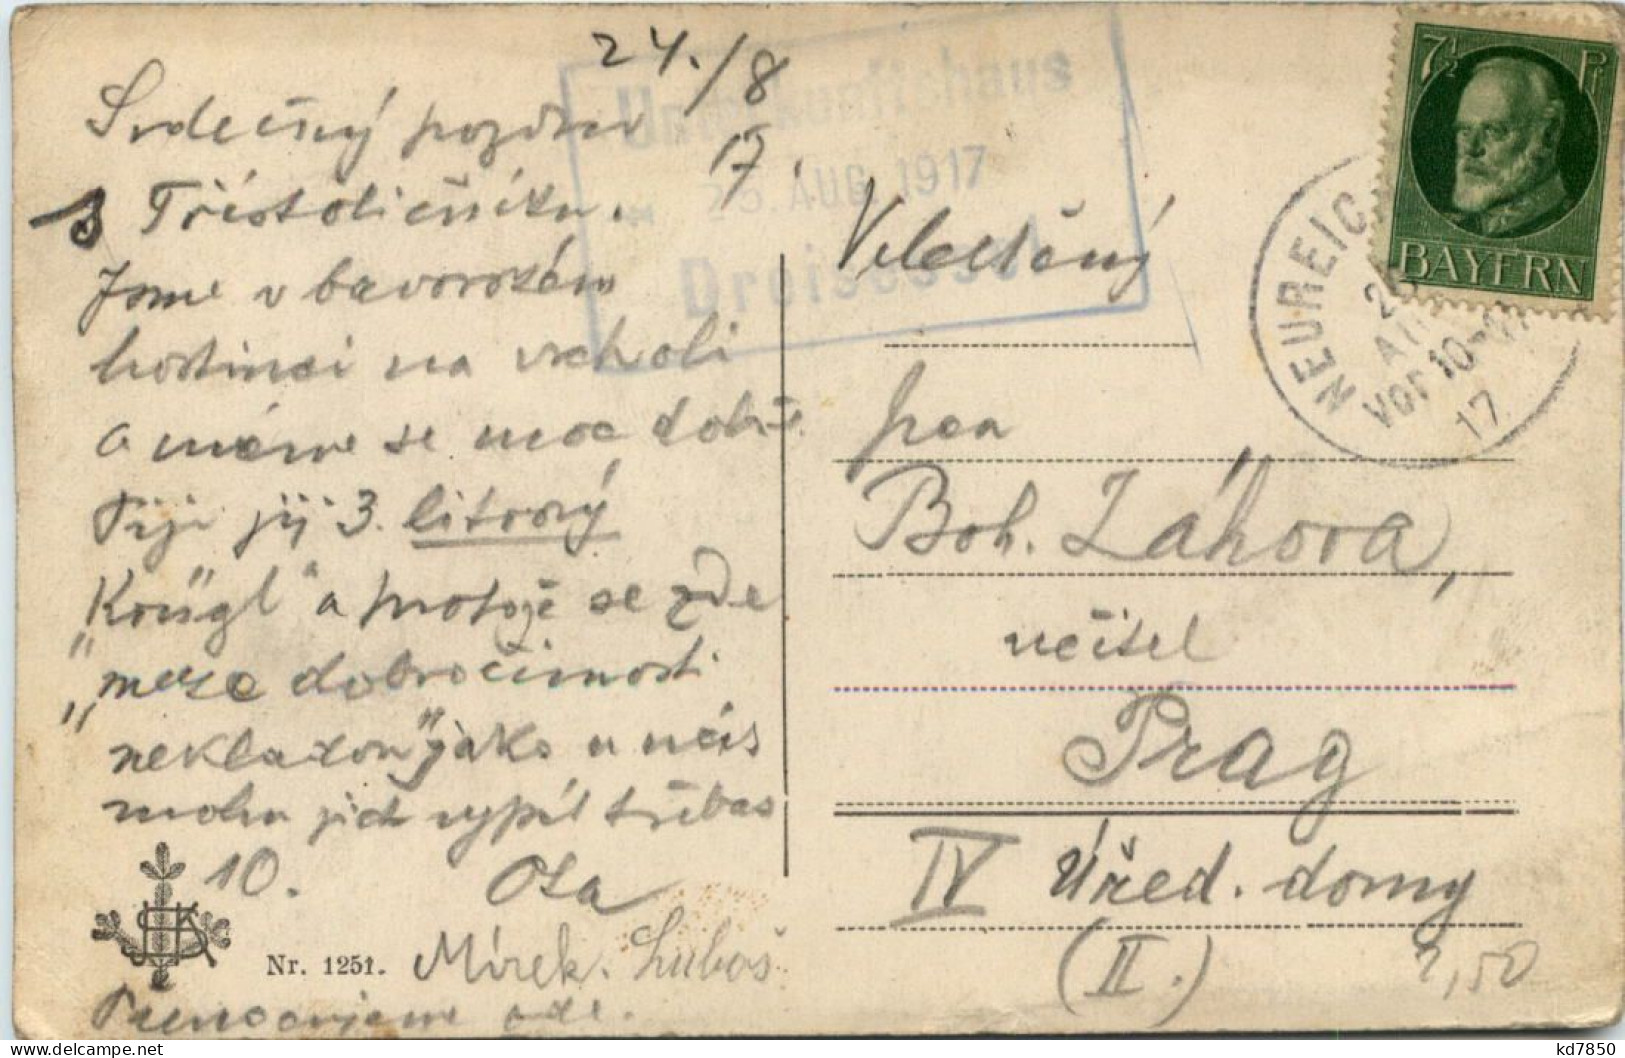 24./8
17.
Srdečný pozdrav
s Třístoličníku.
Jsme v bavorském
hostinci na vrcholi
a máme se moc dobře.
Piji jij 3. litrový
"Krügl" a protože se zde
"meze dobročinnosti
nekladou" jako u nás
mohu jich vypít třebas
10. Ota
Mirek. Luboš
Přenocujeme zde.
Nr. 1251.
Unterkunftshaus
25. AUG. 1917
Dreisessel
7½ Pf
BAYERN
NEUREICH
25
AUG
Vor 10-11
17
Veledůstojný
pan
Boh. Záhora,
učitel
Prag
IV Úřed. domy
(II.)
2,50
delcampe.net
kd7850